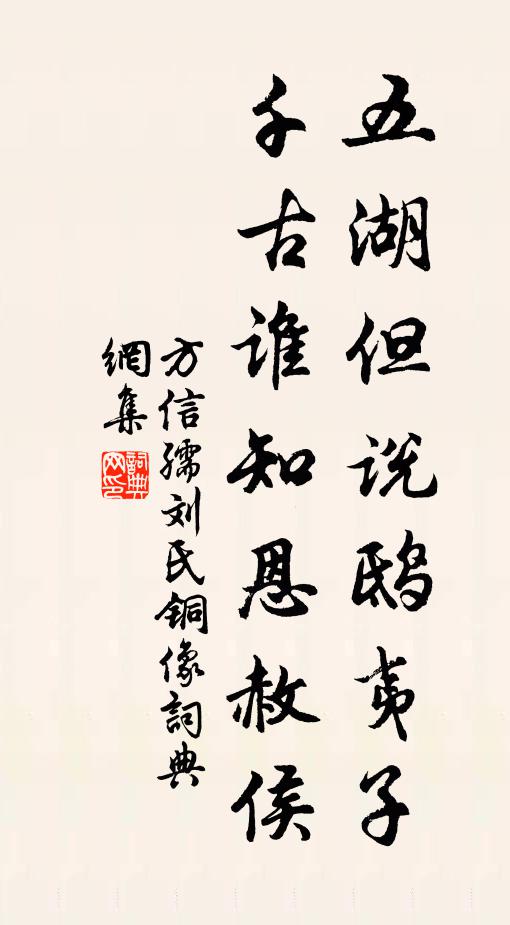 五湖但说鸱夷子
千古谁知恩赦侯
方信孺刘氏铜像詞典
網集
詞典網印